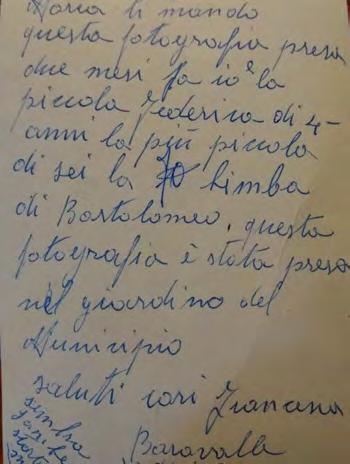 Maria ti mando
questa fotografia presa
due mesi fa io e la
piccola Federica di 4
anni la più piccola
di sei la bimba
di Bartolomeo, questa
fotografia è stata presa
nel giardino del
Municipio
saluti cari Giovanna
Baravalle
sembra